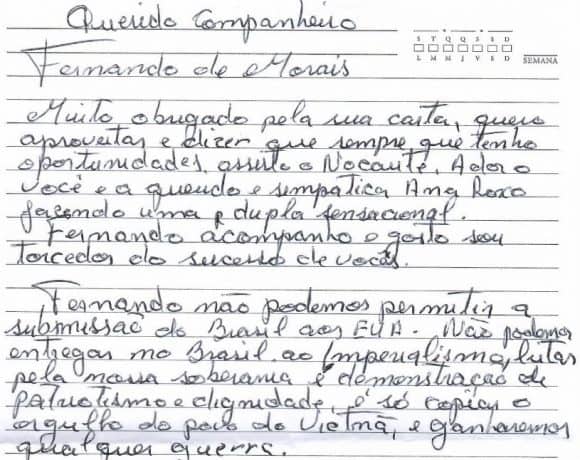 Querido Companheiro
S T Q Q S S D
L M M J V S D
SEMANA
Fernando de Morais
Muito obrigado pela sua carta, quero
aproveitar e dizer que sempre que tenho
oportunidades, assisto o Nocaute, Adoro
você e a querido e simpática Ana Roxo
fazendo uma dupla sensacional.
Fernando acompanho e gosto sou
torcedor do sucesso de vocês.
Fernando não podemos permitir a
submissão do Brasil aos EUA. Não podemos
entregar no Brasil ao Imperialismo, lutar
pela nossa soberania é demonstração de
patriotismo e dignidade, é só copiar o
orgulho do povo do Vietnã, e ganharemos
qualquer guerra.